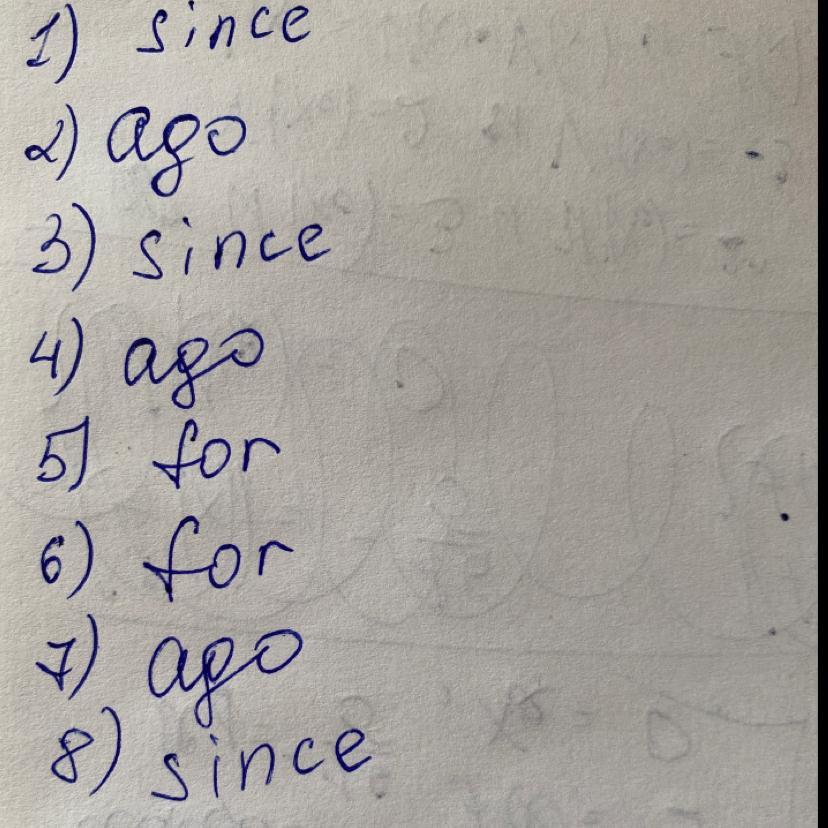 1) since
2) ago
3) since
4) ago
5) for
6) for
7) ago
8) since